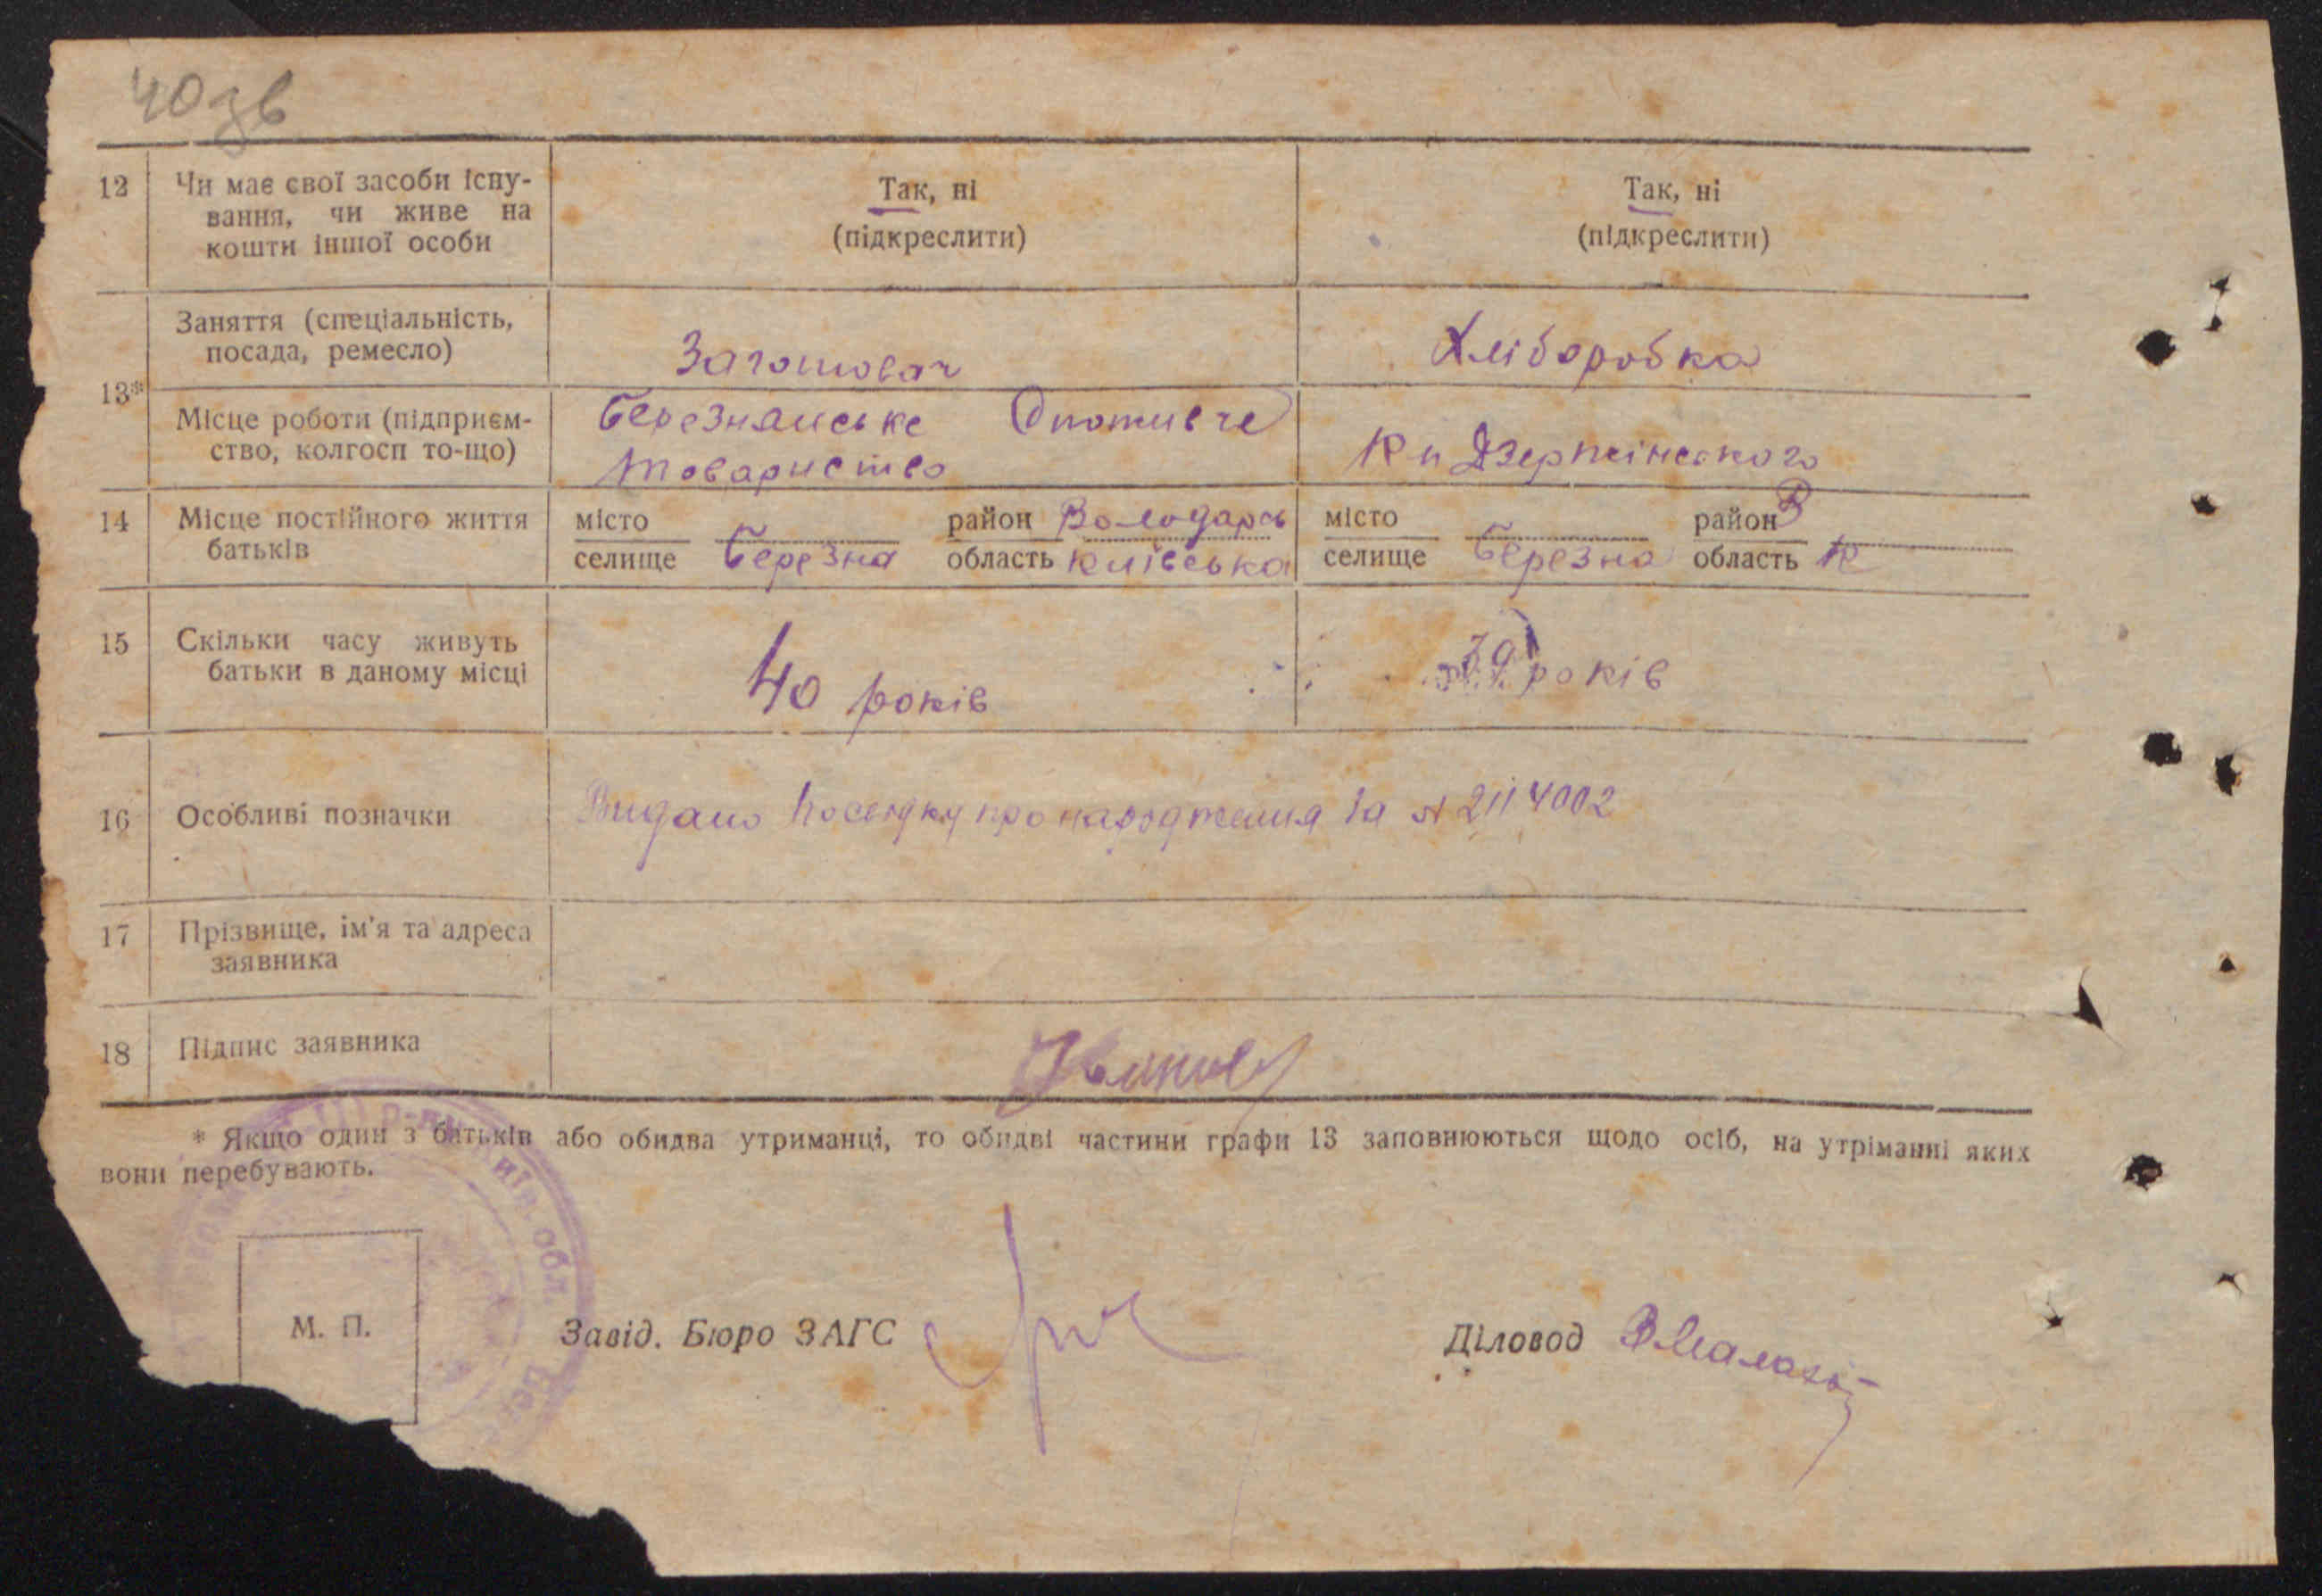 40зв
12 Чи має свої засоби існу-
вання, чи живе на
кошти іншої особи
Так, ні
(підкреслити)
Так, ні
(підкреслити)
13*
Заняття (спеціальність,
посада, ремесло)
Заготовач
Хліборобка
Місце роботи (підприєм-
ство, колгосп то-що)
Березнянське Споживче
товариство
К и Дзержінського
14 Місце постійного життя
батьків
місто
селище Березна
район Володарсь
область Київська
місто
селище Березна
район В
область К
15 Скільки часу живуть
батьки в даному місці
40 років
років
16 Особливі позначки
Видано посвідку про народження за № 2114002
17 Прізвище, ім'я та адреса
заявника
18 Підпис заявника
* Якщо один з батьків або обидва утриманці, то обидві частини графи 13 заповнюються щодо осіб, на утріманні яких
вони перебувають.
р-ну Київ. обл.
М. П.
Завід. Бюро ЗАГС
Діловод